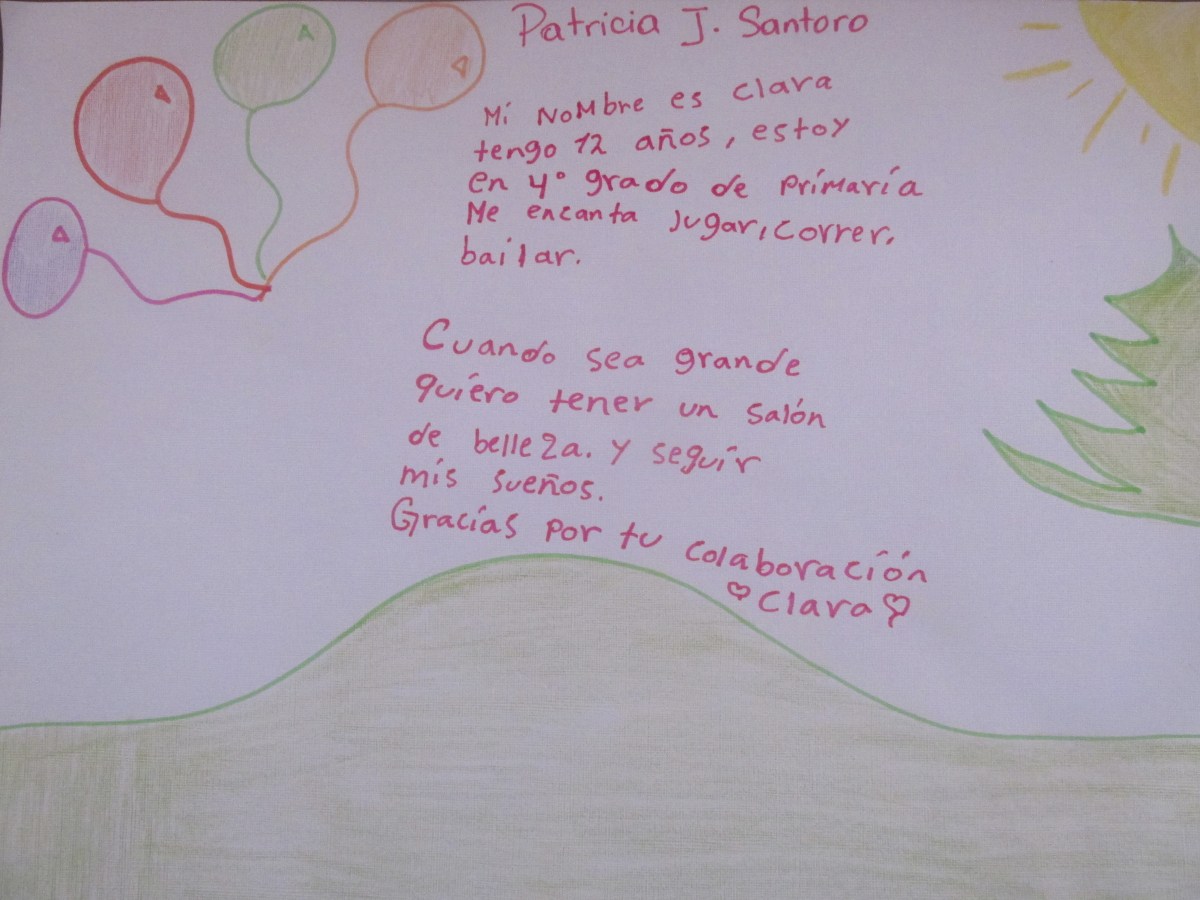 Patricia J. Santoro
Mi NoMbre es clara
tengo 12 años, estoy
en 4° grado de primaria
Me encanta jugar, correr,
bailar.
Cuando sea grande
quiero tener un salón
de belleza. y seguir
mis sueños.
Gracias por tu colaboración
♡Clara♡